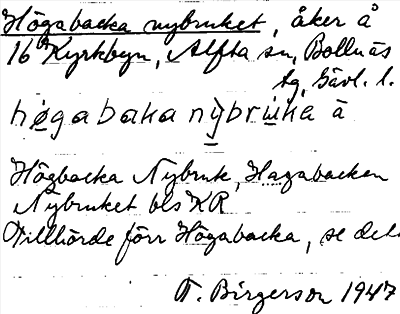 Högabacka nybruket, åker å
16 Kyrkbyn, Alfta sn, Bollnäs
tg, Gävl. l.
høgabaka nỳbru̲ka ä
Högbacka Nybruk, Hagabacken
Nybruket bls KR
Tillhörde förr Högabacka, se det.
T. Birgerson 1947